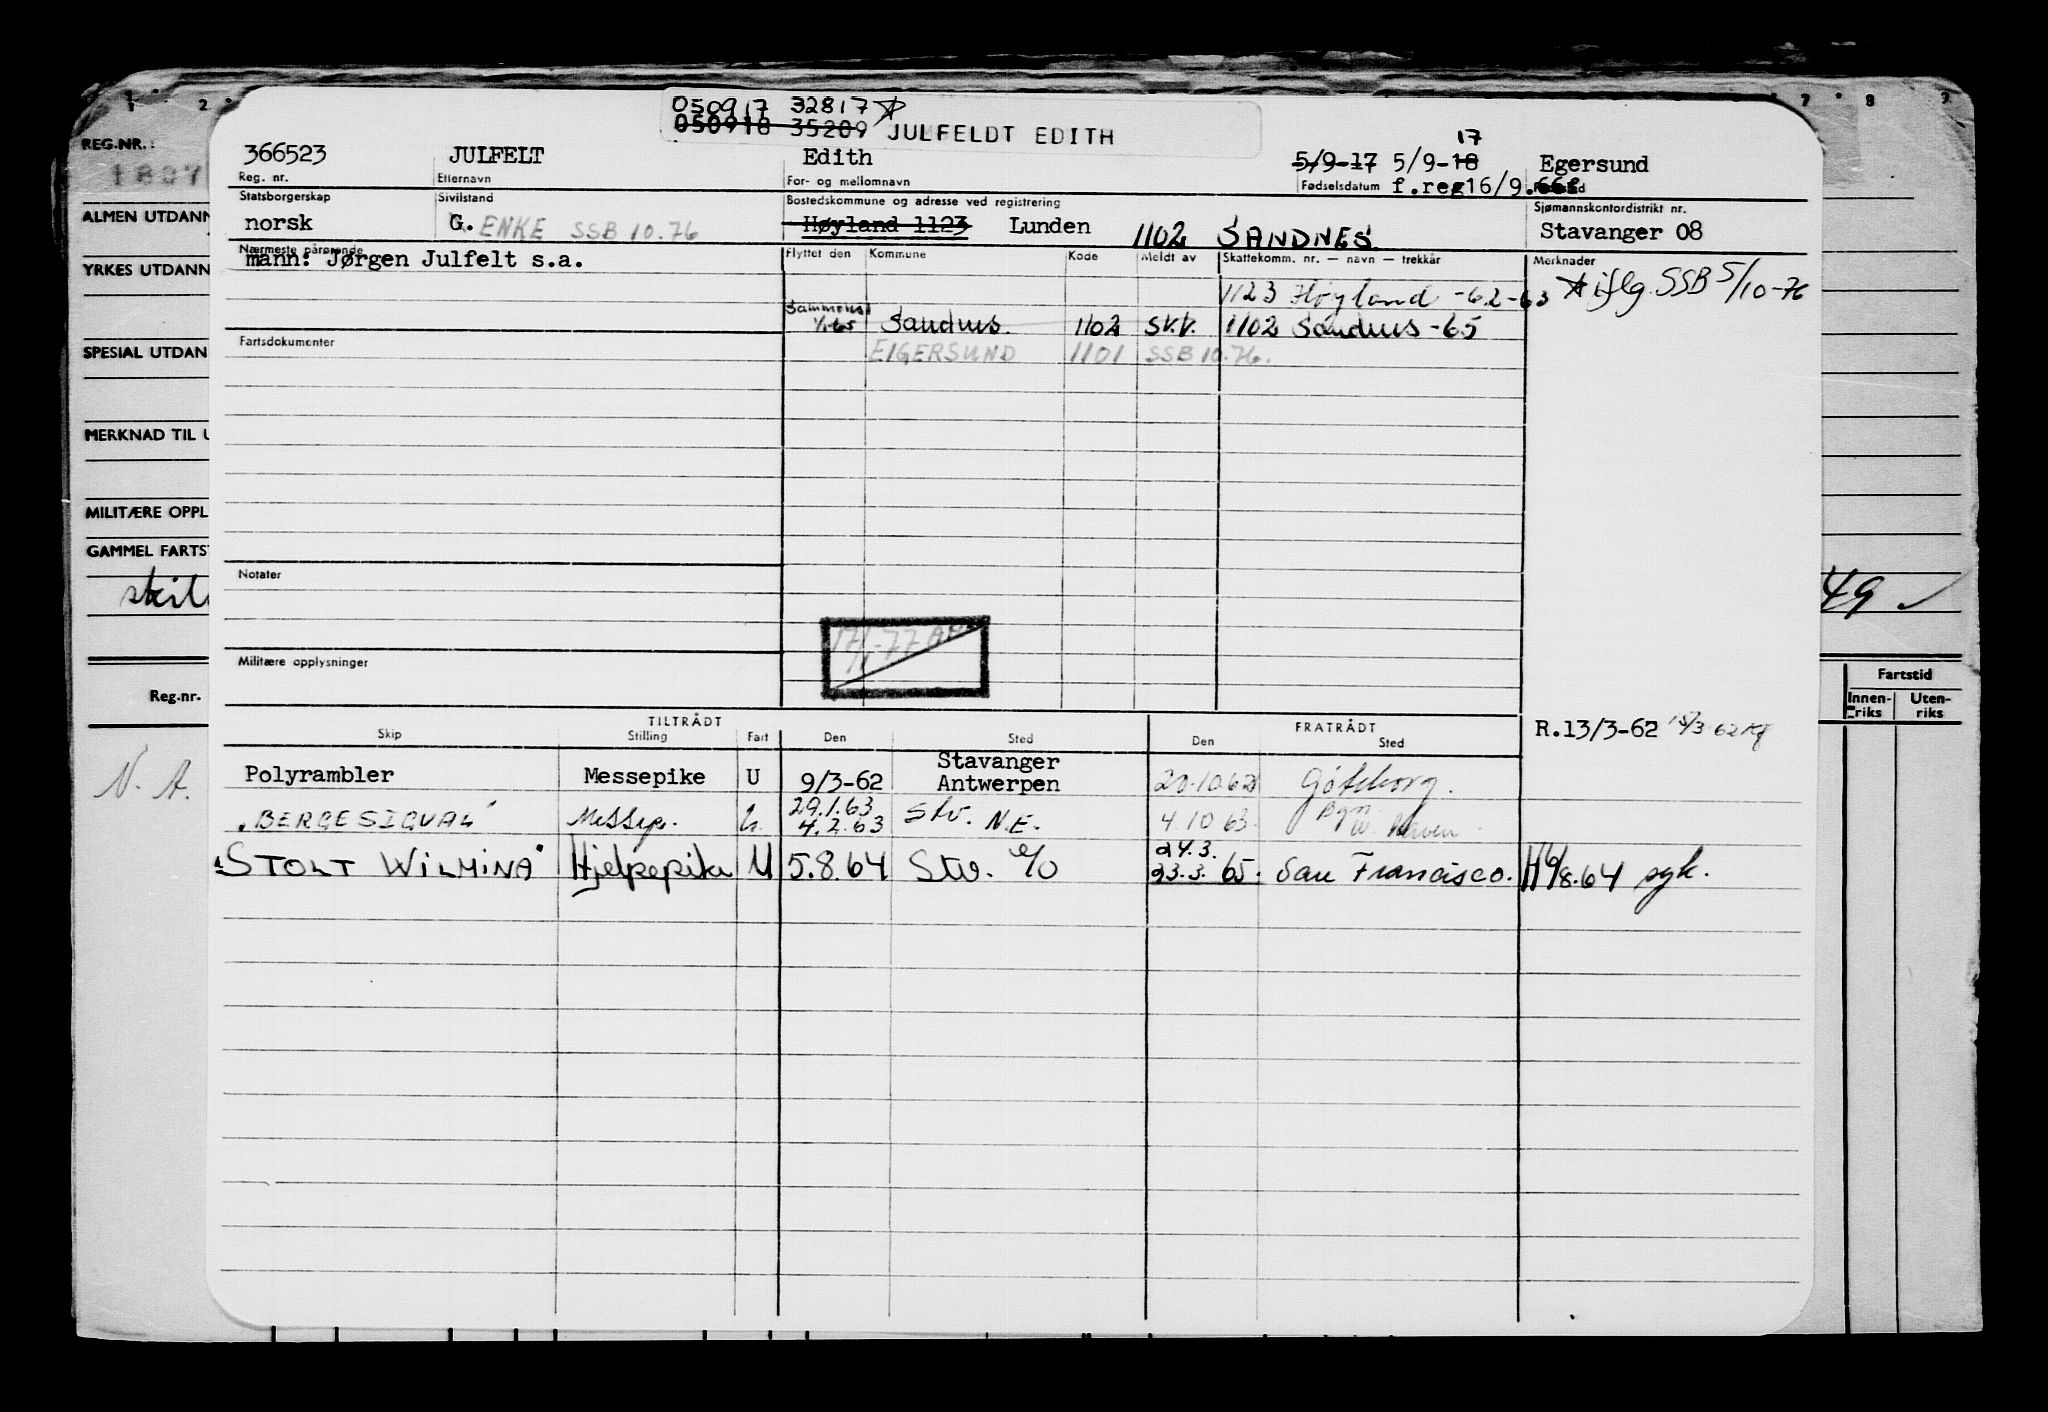 1 2 7 8 9
050917 32817
050918 35209 JULFELDT EDITH
REG.NR.:
17
366523 JULFELT Edith 5/9-17 5/9-18 Egersund
Reg. nr. Etternavn For- og mellomnavn Fødselsdatum f.reg16/9.
Statsborgerskap Sivilstand Bostedskommune og adresse ved registrering Sjømannskontordistrikt nr.
norsk G. ENKE SSB 10.76 Høyland 1123 Lunden 1102 SANDNES Stavanger 08
Nærmeste pårørende Flyttet den Kommune Kode Meldt av Skattekomm. nr. — navn — trekkår Merknader
mann: Jørgen Julfelt s.a.
1123 Høyland -62-63 iflg. SSB 5/10-76
1/1-65 Sandnes 1102 SV.V. 1102 Sandnes -65
Fartsdokumenter
EIGERSUND 1101 SSB 10.76.
ALMEN UTDANN
YRKES UTDANN
SPESIAL UTDAN
MERKNAD TIL U
MILITÆRE OPPL
GAMMEL FARTST
49
Notater
17/1-77
Militære opplysninger
Reg.nr.
Fartstid
Innen-riks Uten-riks
TILTRÅDT FRATRÅDT
R.13/3-62 15/3-62
Skip Stilling Fart Den Sted Den Sted
Stavanger
Polyrambler Messepike U 9/3-62 Antwerpen 20.10.62 Göteborg.
29.1.63
"BERGESIGVAL" Messep. U. 4.2.63 Stv. N.E. 4.10.63.
N. A.
24.3.
"STOLT WILMINA" Hjelpepike U 5.8.64 Stv. 23.3.65. San Francisco. 8.64 syk.